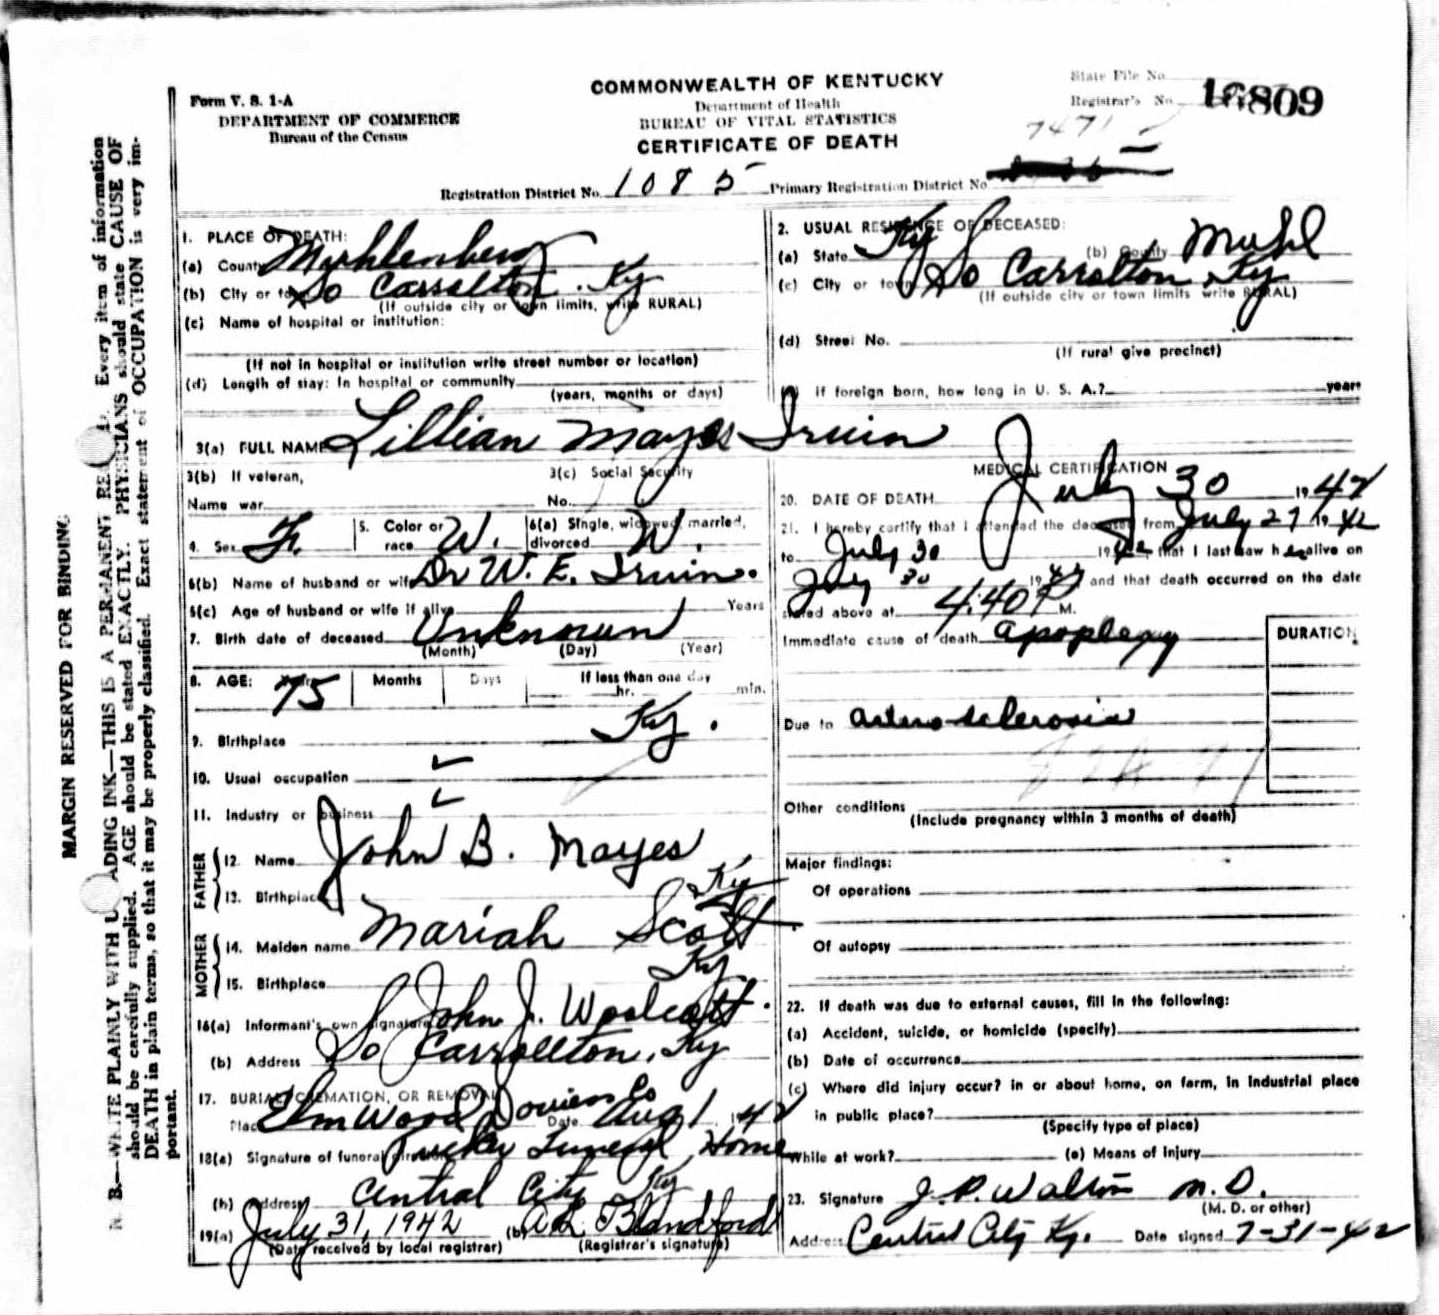 COMMONWEALTH OF KENTUCKY
Department of Health
BUREAU OF VITAL STATISTICS
CERTIFICATE OF DEATH
Form V. S. 1-A
DEPARTMENT OF COMMERCE
Bureau of the Census
State File No.
Registrar's No. 16809
7471
Registration District No. 1085 Primary Registration District No
1. PLACE OF DEATH:
(a) County Muhlenberg
(b) City or town So Carrollton. Ky
(If outside city or town limits, write RURAL)
(c) Name of hospital or institution:
(If not in hospital or institution write street number or location)
(d) Length of stay: In hospital or community
(years, months or days)
2. USUAL RESIDENCE OF DECEASED:
(a) State Ky (b) County Muhl
(c) City or town So Carrolton, Ky
(If outside city or town limits write RURAL)
(d) Street No.
(If rural give precinct)
(e) If foreign born, how long in U. S. A.? years
3(a) FULL NAME Lillian Mayes Irwin
3(b) If veteran,
Name war
3(c) Social Security
No.
4. Sex F. 5. Color or race W. 6(a) Single, widowed, married, divorced W.
6(b) Name of husband or wife Dr W. E. Irwin.
6(c) Age of husband or wife if alive Years
7. Birth date of deceased Unknown
(Month) (Day) (Year)
8. AGE: Years 75 Months Days If less than one day
hr. min.
9. Birthplace Ky.
10. Usual occupation ✓
11. Industry or business ✓
FATHER
12. Name John B. Mayes
13. Birthplace Ky
MOTHER
14. Maiden name Mariah Scott
15. Birthplace Ky
16(a) Informant's own signature John J. Woolcott.
(b) Address So Carrollton, Ky
17. BURIAL, CREMATION, OR REMOVAL
Place Elmwood Daviess Co Date Aug 1 1942
18(a) Signature of funeral director Tucker Funeral Home
(b) Address Central City Ky
19(a) July 31, 1942 (b) A L Blandford
(Date received by local registrar) (Registrar's signature)
MEDICAL CERTIFICATION
20. DATE OF DEATH July 30 1942
21. I hereby certify that I attended the deceased from July 27 1942
to July 30 1942 that I last saw her alive on
July 30 1942 and that death occurred on the date
stated above at 4:40 P M.
Immediate cause of death apoplexy
DURATION
Due to arterio-sclerosis
Other conditions
(Include pregnancy within 3 months of death)
Major findings:
Of operations
Of autopsy
22. If death was due to external causes, fill in the following:
(a) Accident, suicide, or homicide (specify)
(b) Date of occurrence
(c) Where did injury occur? in or about home, on farm, in industrial place
in public place?
(Specify type of place)
While at work? (e) Means of injury
23. Signature J. P. Walton M. D.
(M. D. or other)
Address Central City Ky. Date signed 7-31-42
MARGIN RESERVED FOR BINDING
N. B.—WRITE PLAINLY WITH UNFADING INK—THIS IS A PERMANENT RECORD. Every item of information
should be carefully supplied. AGE should be stated EXACTLY. PHYSICIANS should state CAUSE OF
DEATH in plain terms, so that it may be properly classified. Exact statement of OCCUPATION is very im-
portant.